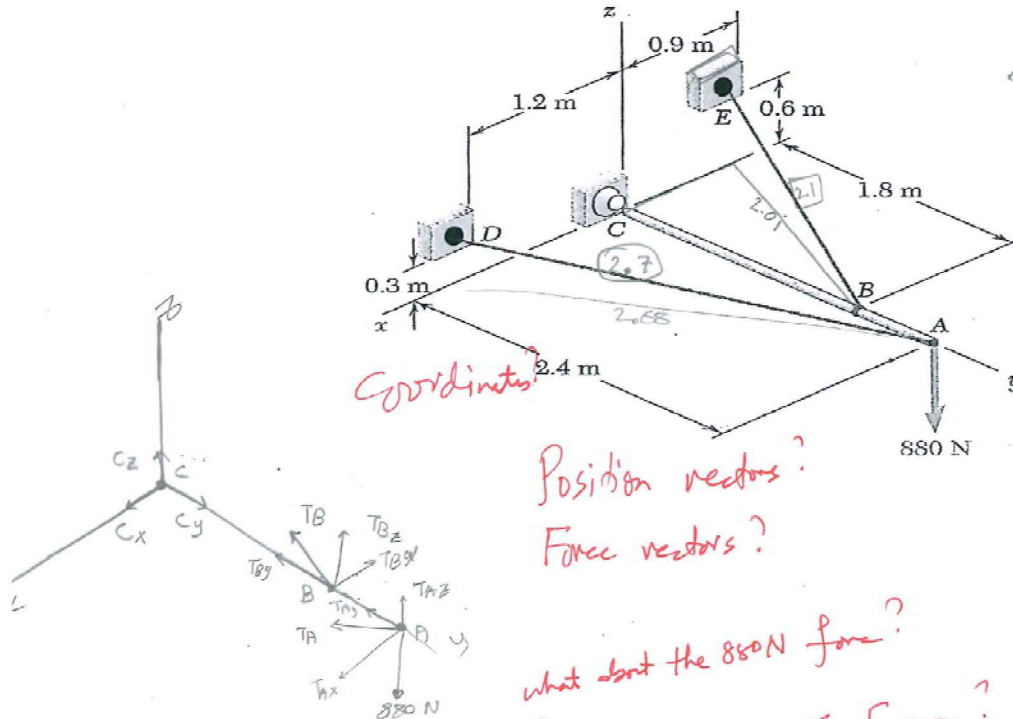 z
0.9 m
1.2 m
E
0.6 m
2.1
1.8 m
2.01
C
D
2.7
0.3 m
B
x
2.68
A
2.4 m
y
880 N
Coordinates?
Position vectors?
Force vectors?
what about the 880N force?
z
Cz
C
Cx
Cy
TB
TBz
TBx
TBy
B
TAy
TAz
TA
A
y
TAx
880 N